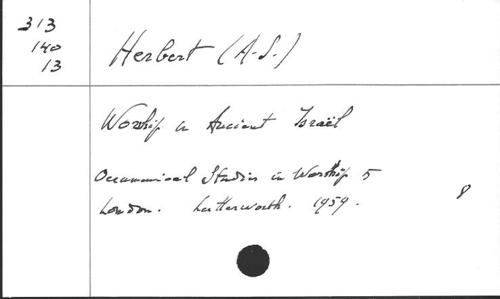 313
140
13
Herbert (A.-S.)
Worship in Ancient Israël
Oecumenical Studies in Worship 5
London. Lutterworth. 1959.
8